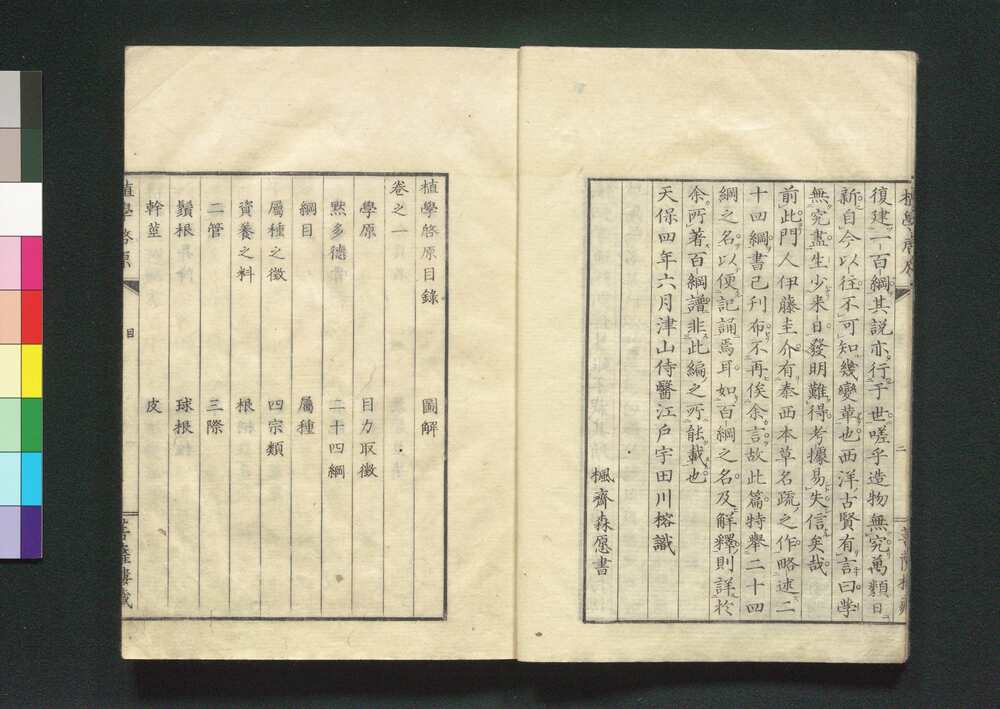 復建一百綱其説亦行于世嗟乎造物無究萬類日
新自今以往不可知幾變革也西洋古賢有言曰学
無究盡生少来日發明難得考據易失信矣哉
前此門人伊藤圭介有泰西本草名疏之作略述二
十四綱書已刊布不再俟余言故此篇特舉二十四
綱之名以便記誦焉耳如百綱之名及解釋則詳於
余所著百綱譜非此編之所能載也
天保四年六月津山侍醫江戶宇田川榕識
楓齋森愿書
植學啓原目錄　圖解
卷之一
學原　目力取徴
黙多徳蒲　二十四綱
綱目　屬種
屬種之徴　四宗類
資養之料　根
二管　三際
鬚根　球根
幹莖　皮
植學啓原　目　菩薩樓藏